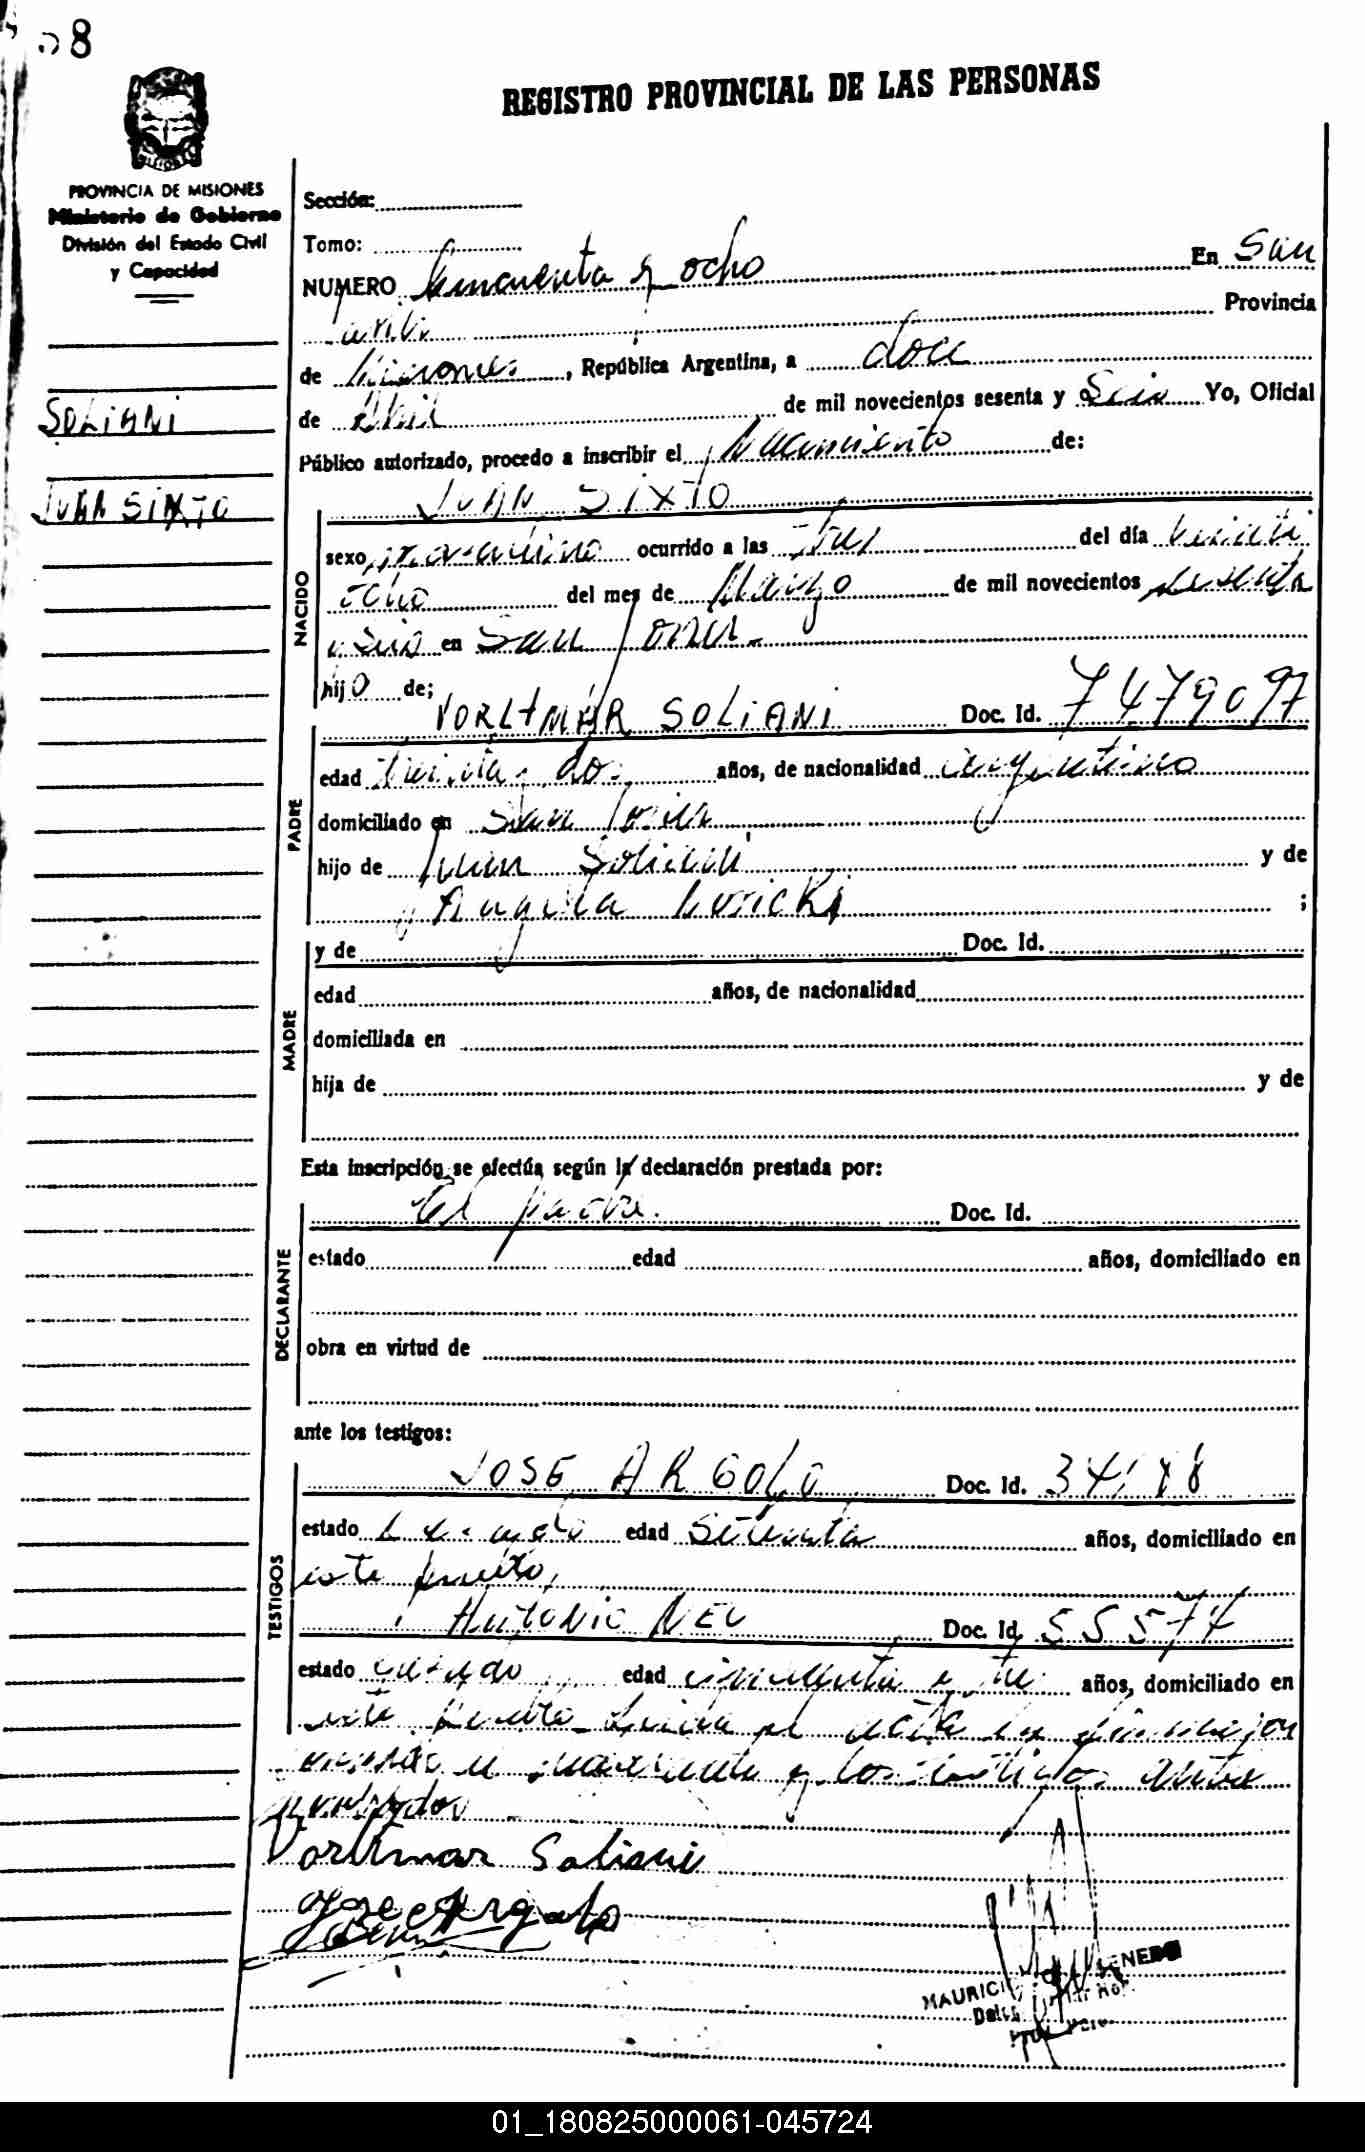 8
REGISTRO PROVINCIAL DE LAS PERSONAS
PROVINCIA DE MISIONES
Ministerio de Gobierno
División del Estado Civil
y Capacidad
SOLIANI
JUAN SIXTO
Sección:
Tomo:
NUMERO Cincuenta y ocho En San
Provincia
de Misiones, República Argentina, a doce
de Abril de mil novecientos sesenta y Seis Yo, Oficial
Público autorizado, procedo a inscribir el Nacimiento de:
JUAN SIXTO
NACIDO
sexo masculino ocurrido a las tres del día veinti
ocho del mes de Marzo de mil novecientos sesenta
y Seis en San
hijo de; VORLTMAR SOLIANI Doc. Id. 7479097
PADRE
edad treinta y dos años, de nacionalidad argentino
domiciliado en San
hijo de Juan Soliani y de
Angela ;
MADRE
y de Doc. Id.
edad años, de nacionalidad
domiciliada en
hija de y de
Esta inscripción se efectúa según la declaración prestada por:
El padre. Doc. Id.
DECLARANTE
estado edad años, domiciliado en
obra en virtud de
ante los testigos:
TESTIGOS
JOSE ARGOLO Doc. Id.
estado edad Setenta años, domiciliado en
este
ANTONIO NEU Doc. Id. 55574
estado casado edad cincuenta y tres años, domiciliado en
este Leida el acta la firma
y los testigos antes
nombrados
Vorltmar Soliani
Jose Argolo
MAURICI
01_180825000061-045724